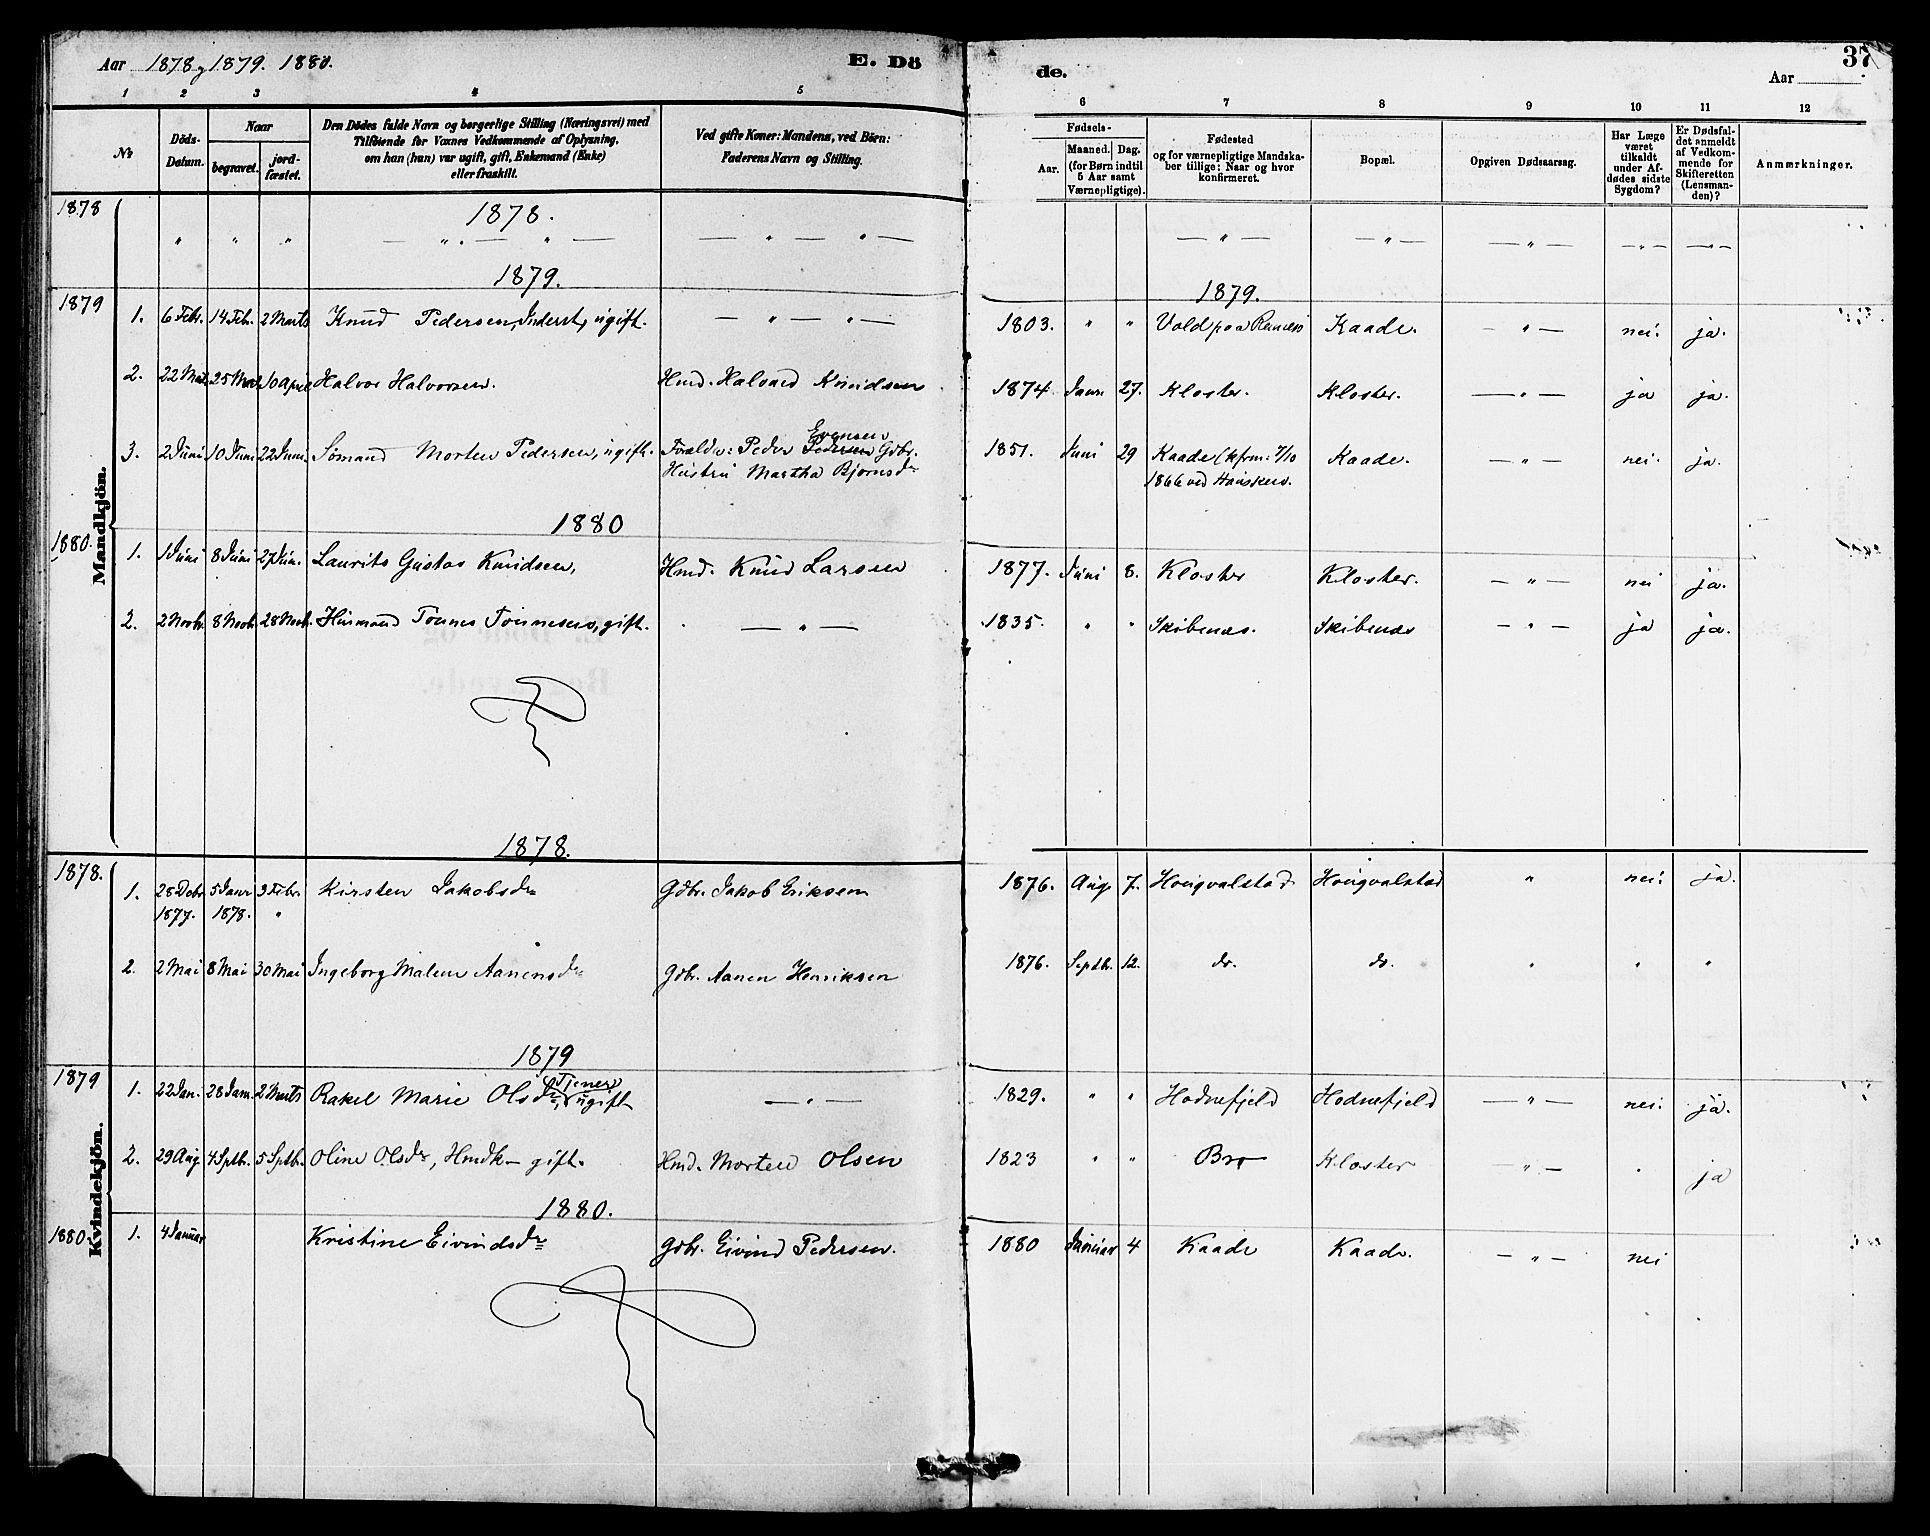 Aar 1878, 1879. 1880.
E. Dö
de.
37
Aar
1 2 3 4 5 6 7 8 9 10 11 12
№
Döds-Datum.
Naar
begravet.
jord-fæstet.
Den Dödes fulde Navn og borgerlige Stilling (Næringsvei) med
Tilföiende for Voxnes Vedkommende af Oplysning,
om han (hun) var ugift, gift, Enkemand (Enke)
eller fraskilt.
Ved gifte Koner: Mandens, ved Börn:
Faderens Navn og Stilling.
Fødsels-
Aar.
Maaned. Dag.
(for Børn indtil
5 Aar samt
Værnepligtige).
Fødested
og for værnepligtige Mandska-
ber tillige: Naar og hvor
konfirmeret.
Bopæl.
Opgiven Dødsaarsag.
Har Læge
været
tilkaldt
under Af-
dødes sidste
Sygdom?
Er Dødsfal-
det anmeldt
af Vedkom-
mende for
Skifteretten
(Lensman-
den)?
Anmærkninger.
Mandkjön.
1878
1878.
" " " — " — " — — " — " — — " — — " — — " — — " — — " —
1879.
1879.
1879
1. 6 Febr. 14 Feb. 2 Marts Knud Pedersen, Inderst, ugift. — " — " — 1803. " " Vold paa Rennesø Kaade. — " — nei. ja.
2. 22 Mar. 25 Mar. 10 April Halvor Halvorsen. Hmd. Halvard Knudsen 1874 Janr 27. Kloster. Kloster. — " — ja ja.
3. 2 Juni 10 Juni 22 Juni. Sömand Morten Pedersen, ugift. Forældre: Peder Pedersen Evensen Gdbr. 1851. Juni 29 Kaade (kfrm: 7/10 Kaade. — " — nei. ja.
Hustru Martha Bjornsdr 1866 ved Hausken.
1880
1880.
1. 1 Juni 8 Juni 27 Jun. Laurits Gustav Knudsen, Hmd. Knud Larsen 1877. Juni 8. Kloster Kloster. — " — nei ja.
2. 2 Novbr. 8 Novb. 28 Novb. Husmand Tönnes Tönnesen, gift. — " — 1835. " " Skibenæs. Skibenæs — " — ja ja.
Kvindekjön.
1878.
1878.
1. 28 Debr 5 Janr 3 Febr. Kirsten Jakobsdr Gdbr. Jakob Eriksen 1876. Aug. 7. Hougvalstad Hougvalstad " nei. ja.
1877. 1878. "
2. 2 Mai 8 Mai 30 Mai Ingeborg Malene Aanensdr Gdbr. Aanen Henriksen 1876. Septb. 12. do. do. " " "
1879
1879
1. 22 Jan. 28 Jan. 2 Marts Rakel Marie Olsdr, Tjener, ugift — " — 1829. " " Hodnefjeld Hodnefjeld — " — nei. ja.
2. 29 Aug. 4 Sptb. 5 Sptb. Oline Olsdr, Hmdk— gift. Hmd. Morten Olsen 1823 " " Bro Kloster — " — " ja
1880.
1880.
1. 4 Januar Kristine Eivindsdr Gdbr. Eivind Pedersen. 1880 Januar 4 Kaade Kaade. — " — nei